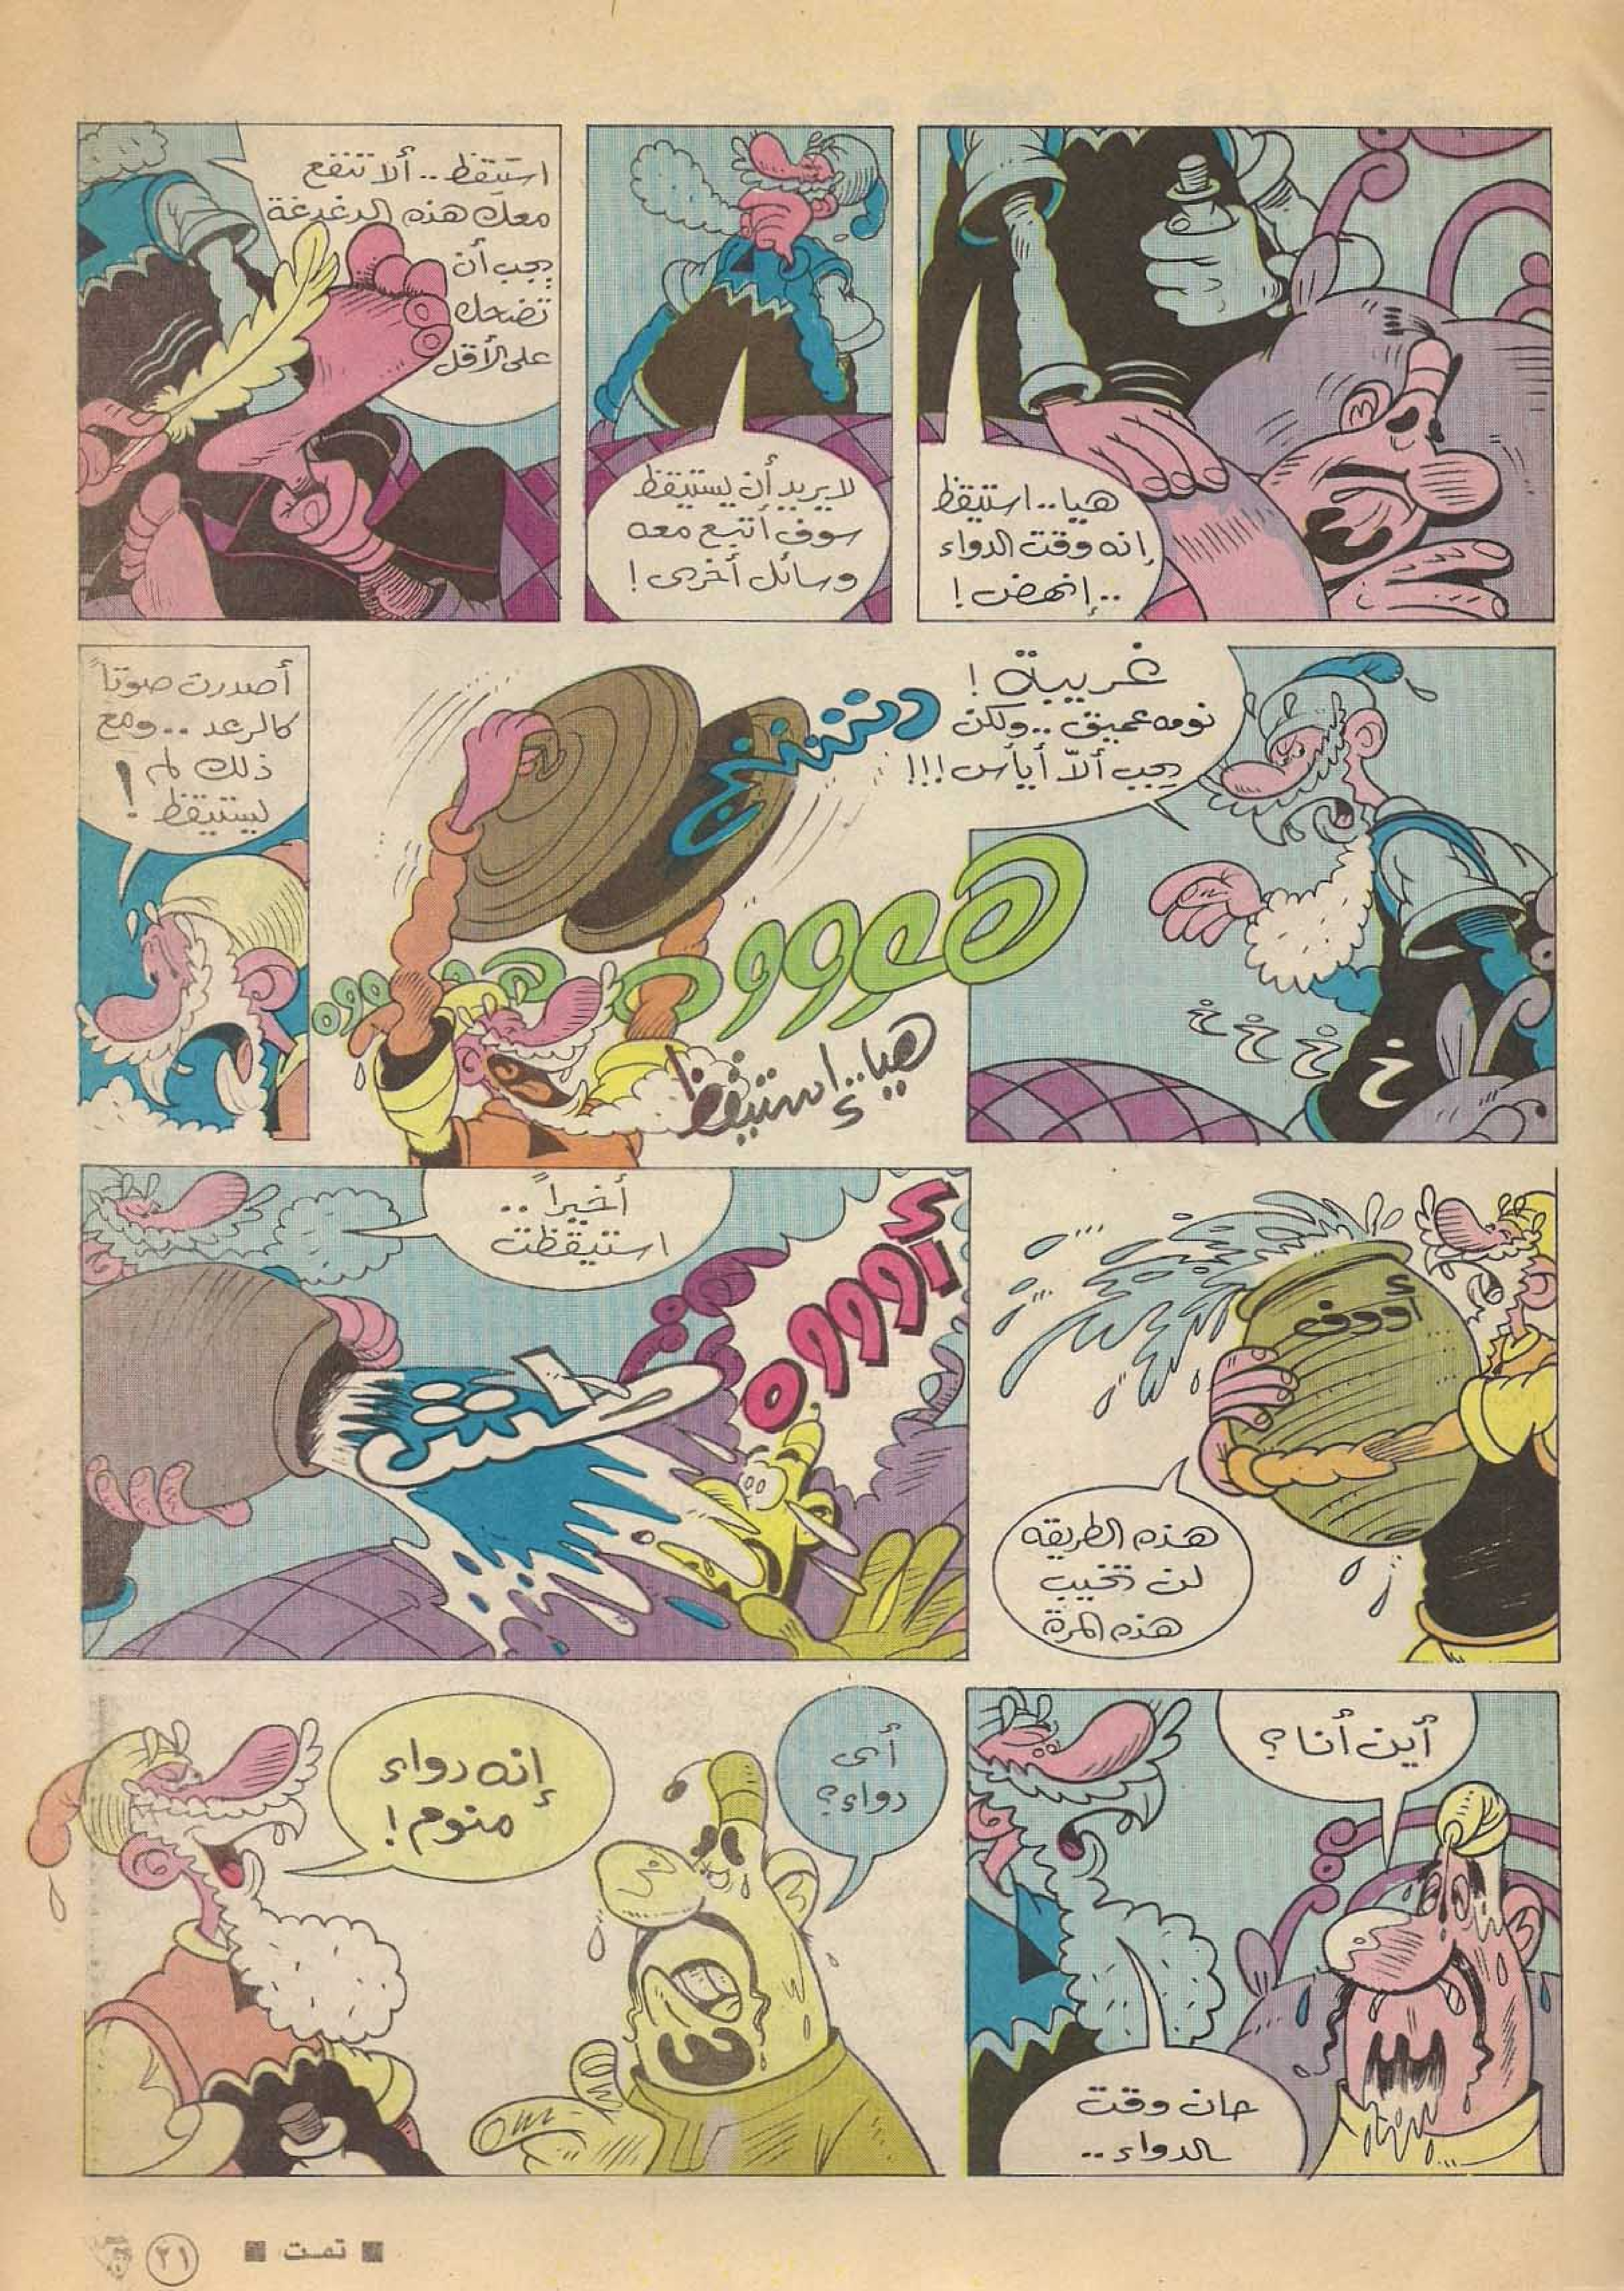 هيا..استيقظ
إنه وقت الدواء
..إنهض!
لا يريد أن يستيقظ
سوف أتبع معه
وسائل أخرى!
استيقظ..ألا تنفع
معك هذه الدغدغة
يجب أن
تضحك
على الأقل
غريبة!
نومه عميق..ولكن
يجب ألاّ أيأس!!!
خ خ خ خ
دننننج
هووووو
هيا..إستيقظ
أصدرت صوتاً
كالرعد..ومع
ذلك لم
يستيقظ!
أووف
هذه الطريقه
لن تخيب
هذه المرة
أخيراً..
استيقظت
طتش
أوووه
أين أنا؟
حان وقت
الدواء..
أى
دواء؟
إنه دواء
منوم!
■ تمت ■
٢١